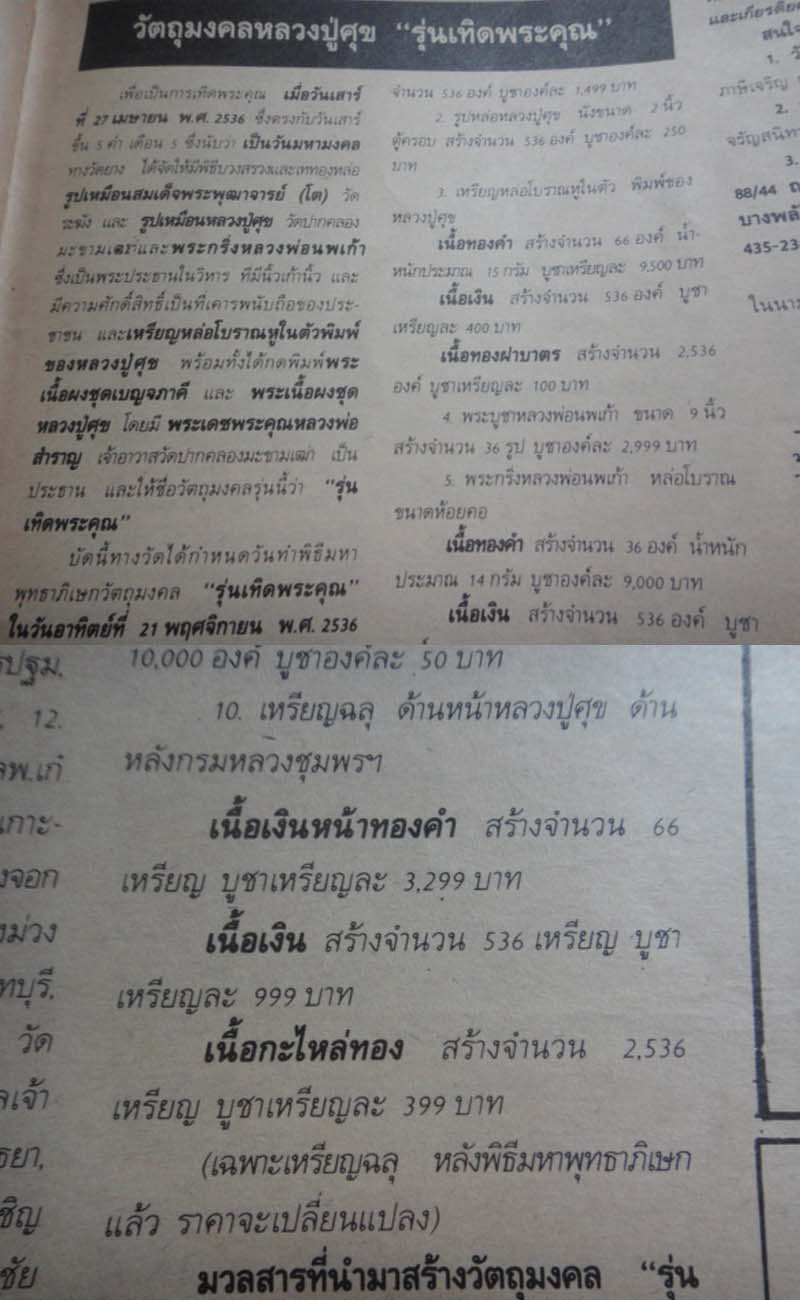 วัตถุมงคลหลวงปู่ศุข “รุ่นเทิดพระคุณ”
เพื่อเป็นการเทิดพระคุณ เมื่อวันเสาร์
ที่ 27 เมษายน พ.ศ. 2536 ซึ่งตรงกับวันเสาร์
ขึ้น 5 ค่ำ เดือน 5 ซึ่งนับว่า เป็นวันมหามงคล
ทางวัดยาง ได้จัดให้มีพิธีบวงสรวงและเททองหล่อ
รูปเหมือนสมเด็จพระพุฒาจารย์ (โต) วัด
ระฆัง และ รูปเหมือนหลวงปู่ศุข วัดปากคลอง
มะขามเฒ่าและพระกริ่งหลวงพ่อนพเก้า
ซึ่งเป็นพระประธานในวิหาร ที่มีนิ้วเก้านิ้ว และ
มีความศักดิ์สิทธิ์เป็นที่เคารพนับถือของประ-
ชาชน และเหรียญหล่อโบราณหูในตัวพิมพ์
ของหลวงปู่ศุข พร้อมทั้งได้กดพิมพ์พระ
เนื้อผงชุดเบญจภาคี และ พระเนื้อผงชุด
หลวงปู่ศุข โดยมี พระเดชพระคุณหลวงพ่อ
สำราญ เจ้าอาวาสวัดปากคลองมะขามเฒ่า เป็น
ประธาน และให้ชื่อวัตถุมงคลรุ่นนี้ว่า “รุ่น
เทิดพระคุณ”
บัดนี้ทางวัดได้กำหนดวันทำพิธีมหา
พุทธาภิเษกวัตถุมงคล “รุ่นเทิดพระคุณ”
ในวันอาทิตย์ที่ 21 พฤศจิกายน พ.ศ. 2536
จำนวน 536 องค์ บูชาองค์ละ 1,499 บาท
2. รูปหล่อหลวงปู่ศุข นั่งขนาด 2 นิ้ว
ตู้ครอบ สร้างจำนวน 536 องค์ บูชาองค์ละ 250
บาท
3. เหรียญหล่อโบราณหูในตัว พิมพ์ของ
หลวงปู่ศุข
เนื้อทองคำ สร้างจำนวน 66 องค์ น้ำ-
หนักประมาณ 15 กรัม บูชาเหรียญละ 9,500 บาท
เนื้อเงิน สร้างจำนวน 536 องค์ บูชา
เหรียญละ 400 บาท
เนื้อทองฝาบาตร สร้างจำนวน 2,536
องค์ บูชาเหรียญละ 100 บาท
4. พระบูชาหลวงพ่อนพเก้า ขนาด 9 นิ้ว
สร้างจำนวน 36 รูป บูชาองค์ละ 2,999 บาท
5. พระกริ่งหลวงพ่อนพเก้า หล่อโบราณ
ขนาดห้อยคอ
เนื้อทองคำ สร้างจำนวน 36 องค์ น้ำหนัก
ประมาณ 14 กรัม บูชาองค์ละ 9,000 บาท
เนื้อเงิน สร้างจำนวน 536 องค์ บูชา
สนใจ
1.
ภาษีเจริญ
2.
จรัญสนิท
3.
88/44 ถ
บางพลั
435-23
ในนาม
10,000 องค์ บูชาองค์ละ 50 บาท
10. เหรียญฉลุ ด้านหน้าหลวงปู่ศุข ด้าน
หลังกรมหลวงชุมพรฯ
เนื้อเงินหน้าทองคำ สร้างจำนวน 66
เหรียญ บูชาเหรียญละ 3,299 บาท
เนื้อเงิน สร้างจำนวน 536 เหรียญ บูชา
เหรียญละ 999 บาท
เนื้อกะไหล่ทอง สร้างจำนวน 2,536
เหรียญ บูชาเหรียญละ 399 บาท
(เฉพาะเหรียญฉลุ หลังพิธีมหาพุทธาภิเษก
แล้ว ราคาจะเปลี่ยนแปลง)
มวลสารที่นำมาสร้างวัตถุมงคล “รุ่น
12.
เกาะ-
วัด